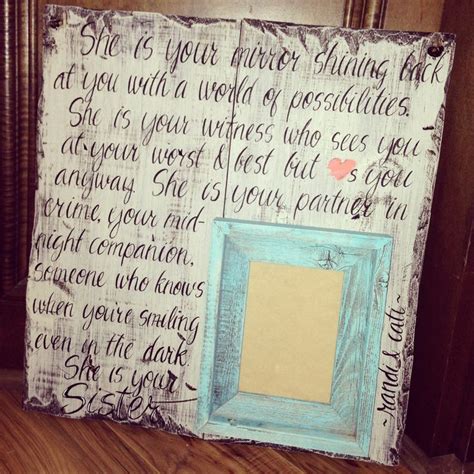 She is your mirror shining back
at you with a world of possibilities.
She is your witness who sees you
at your worst & best but ❤s you
anyway. She is your partner in
crime, your mid-
night companion,
someone who knows
when you're smiling
even in the dark
She is your
Sister
~randi & cali~